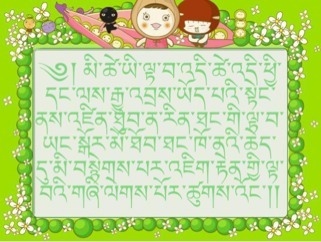 ༄༅། མི་ཚེ་ཡི་ལྟ་བ་འདི་ཚེ་འདི་ཕྱི་
དང་ལས་རྒྱུ་འབྲས་ཡོད་པའི་སྟེང་
ནས་འཛིན་ཐུབ་ན་རིན་ཐང་གི་ལྟ་བ་
ཡང་སྐོར་མི་ཐོབ་ཐང་ཁོ་ནའི་ཆེད་
དུ་མི་བསྔགས་པར་འཇིག་རྟེན་གྱི་ལྟ་
བའི་གཞི་ལེགས་པོར་ཚུགས་འོང་།།